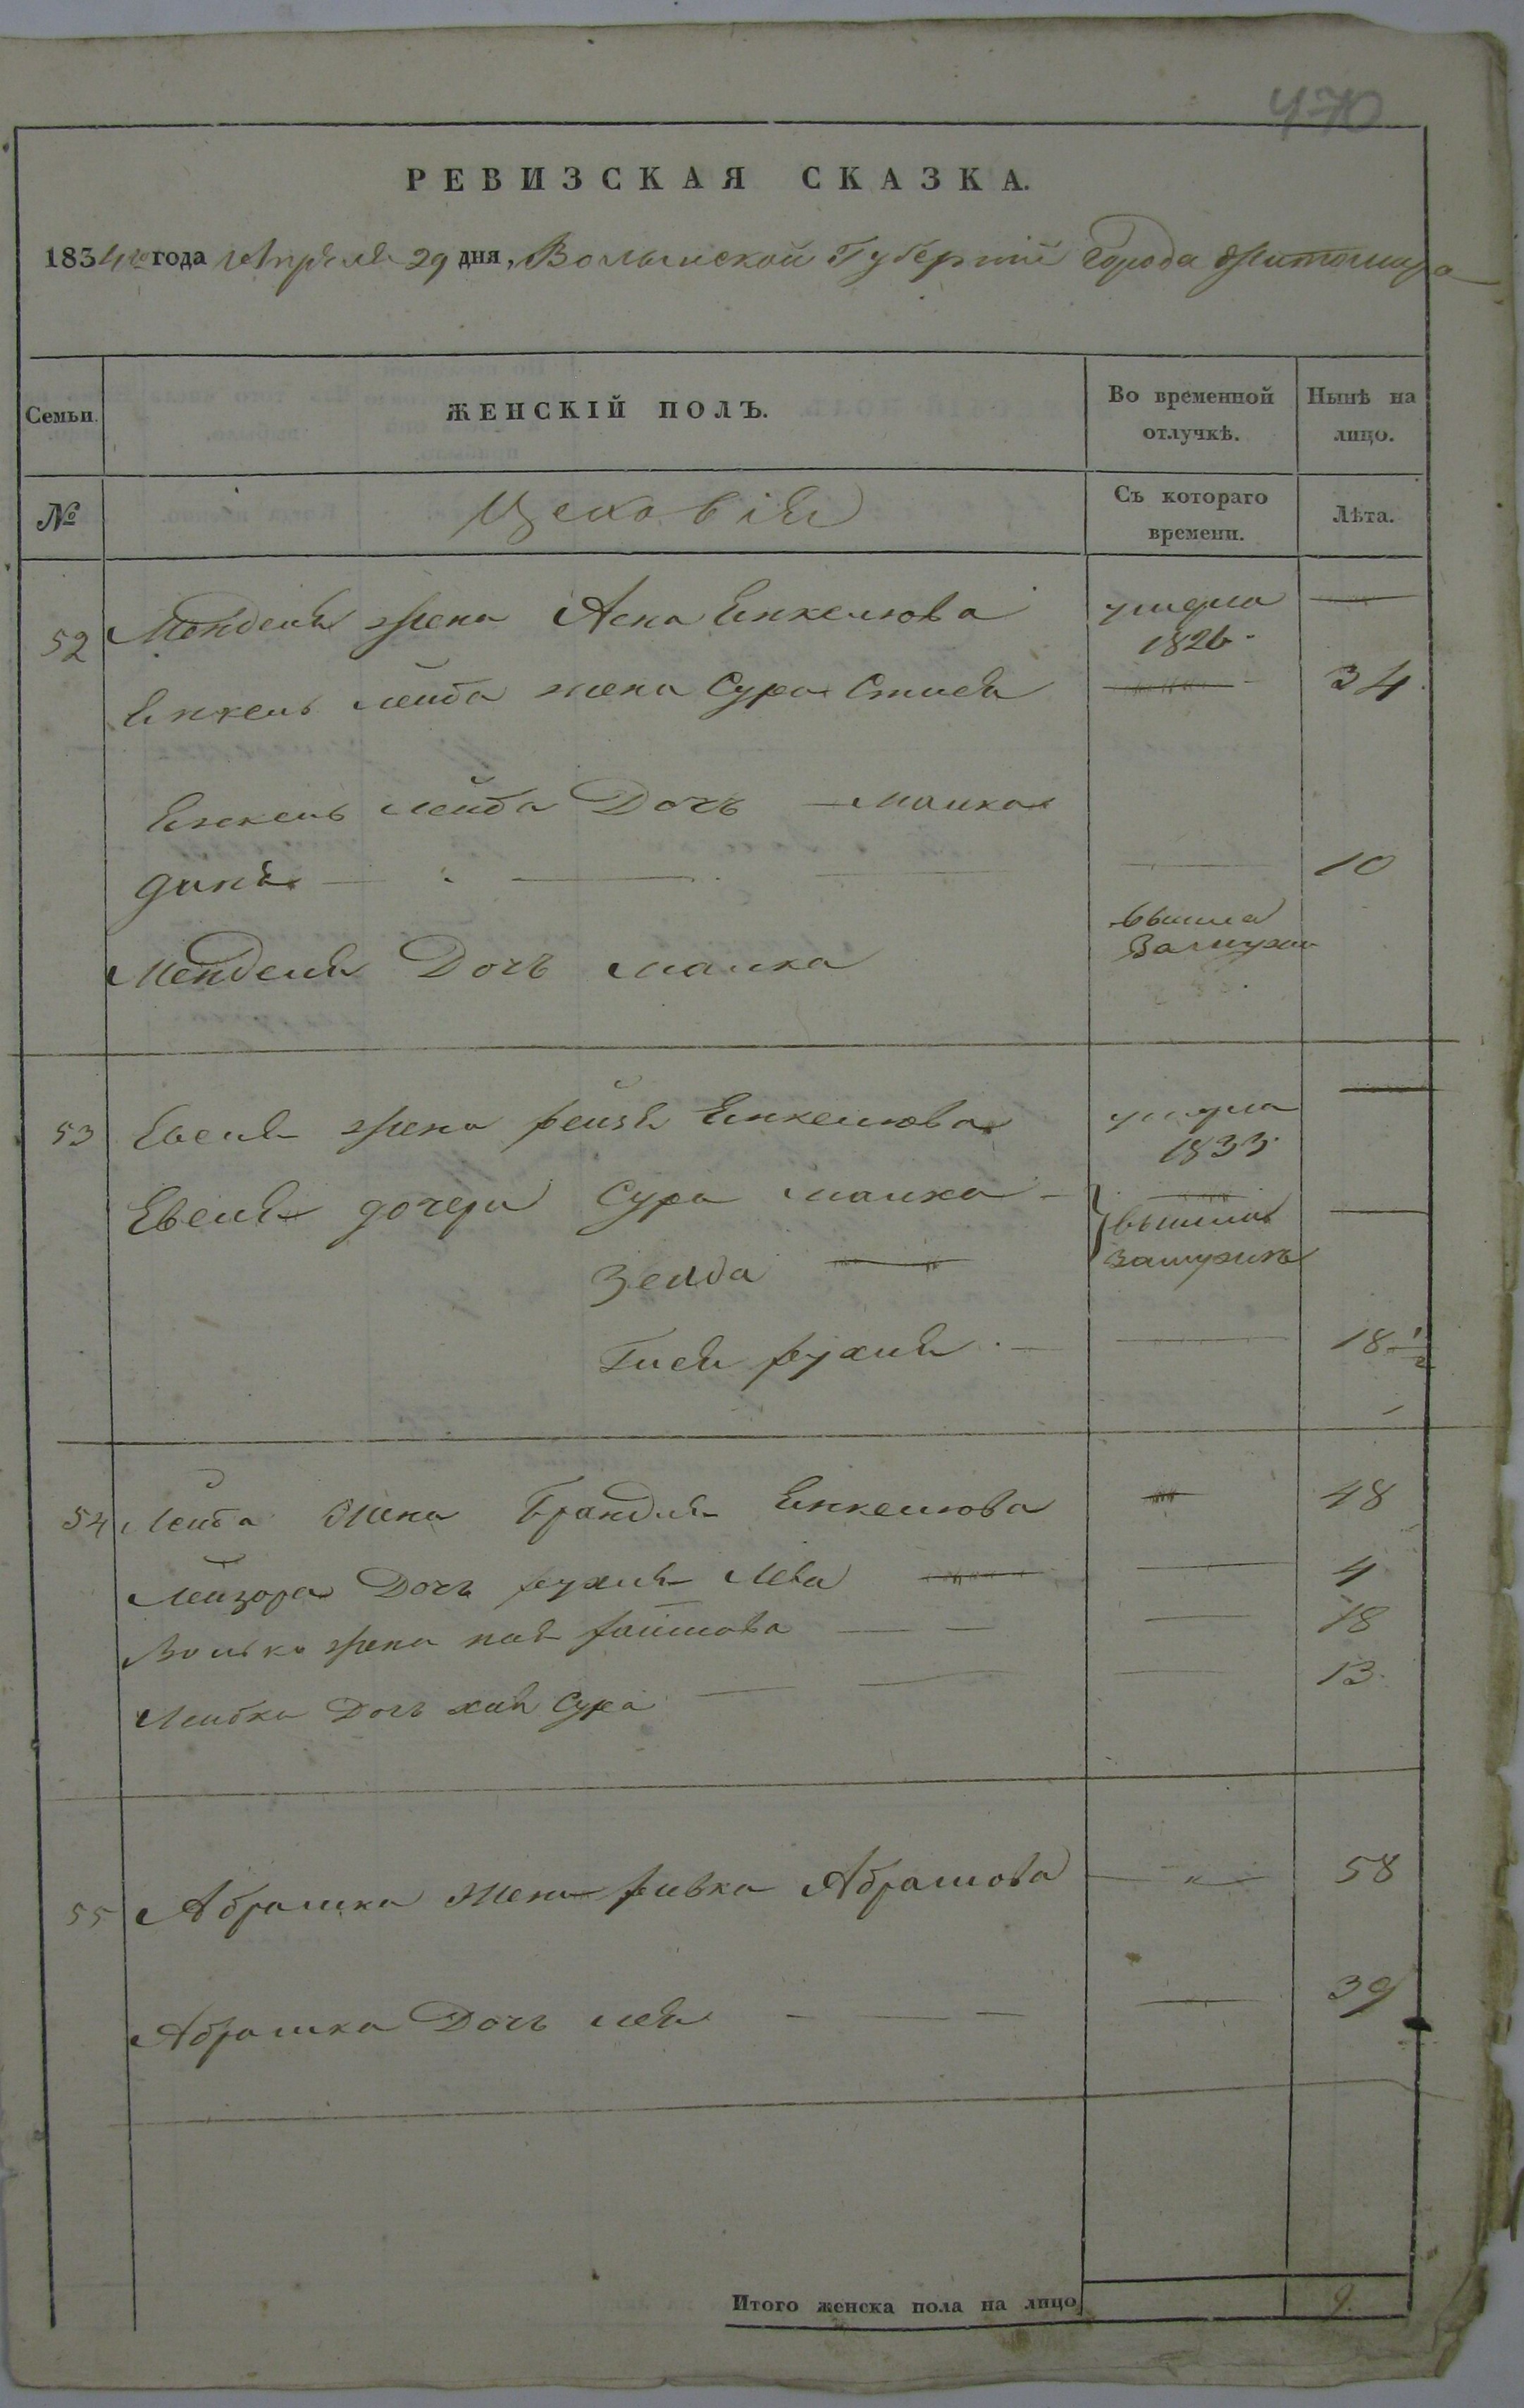 470
РЕВИЗСКАЯ СКАЗКА.
1834го года Апреля 29 дня, Волынской Губернии Города Житомира
Семьи. ЖЕНСКІЙ ПОЛЪ. Во временной отлучкѣ. Нынѣ на лицо.
№ Цеховія Съ котораго времени. Лѣта.
52 Менделя жена Асна Енкелюва умерла 1826 —
Енкель Лейба жена Сура 34
Енкель Лейба Дочь Малка
— — — 10
Менделя Дочь Малка вышла Замужь
53 Евеля жена Рейзя Енкелюва умерла 1833 —
Евеля дочери Сура Малка — вышли замужь —
Зелда —
Гися Рухля — — 18 1/2
54 Лейба Жена Брандля Енкелюва — 48
Лейзора Дочь Рухля Леа — — 4
Волько жена — — — 18
Лейбка Дочь хая Сура — — — 13
55 Абрамка Жена Ривка Абрамова — 58
Абрамка Дочь Лея — — — 39
Итого женска пола на лицо 9.